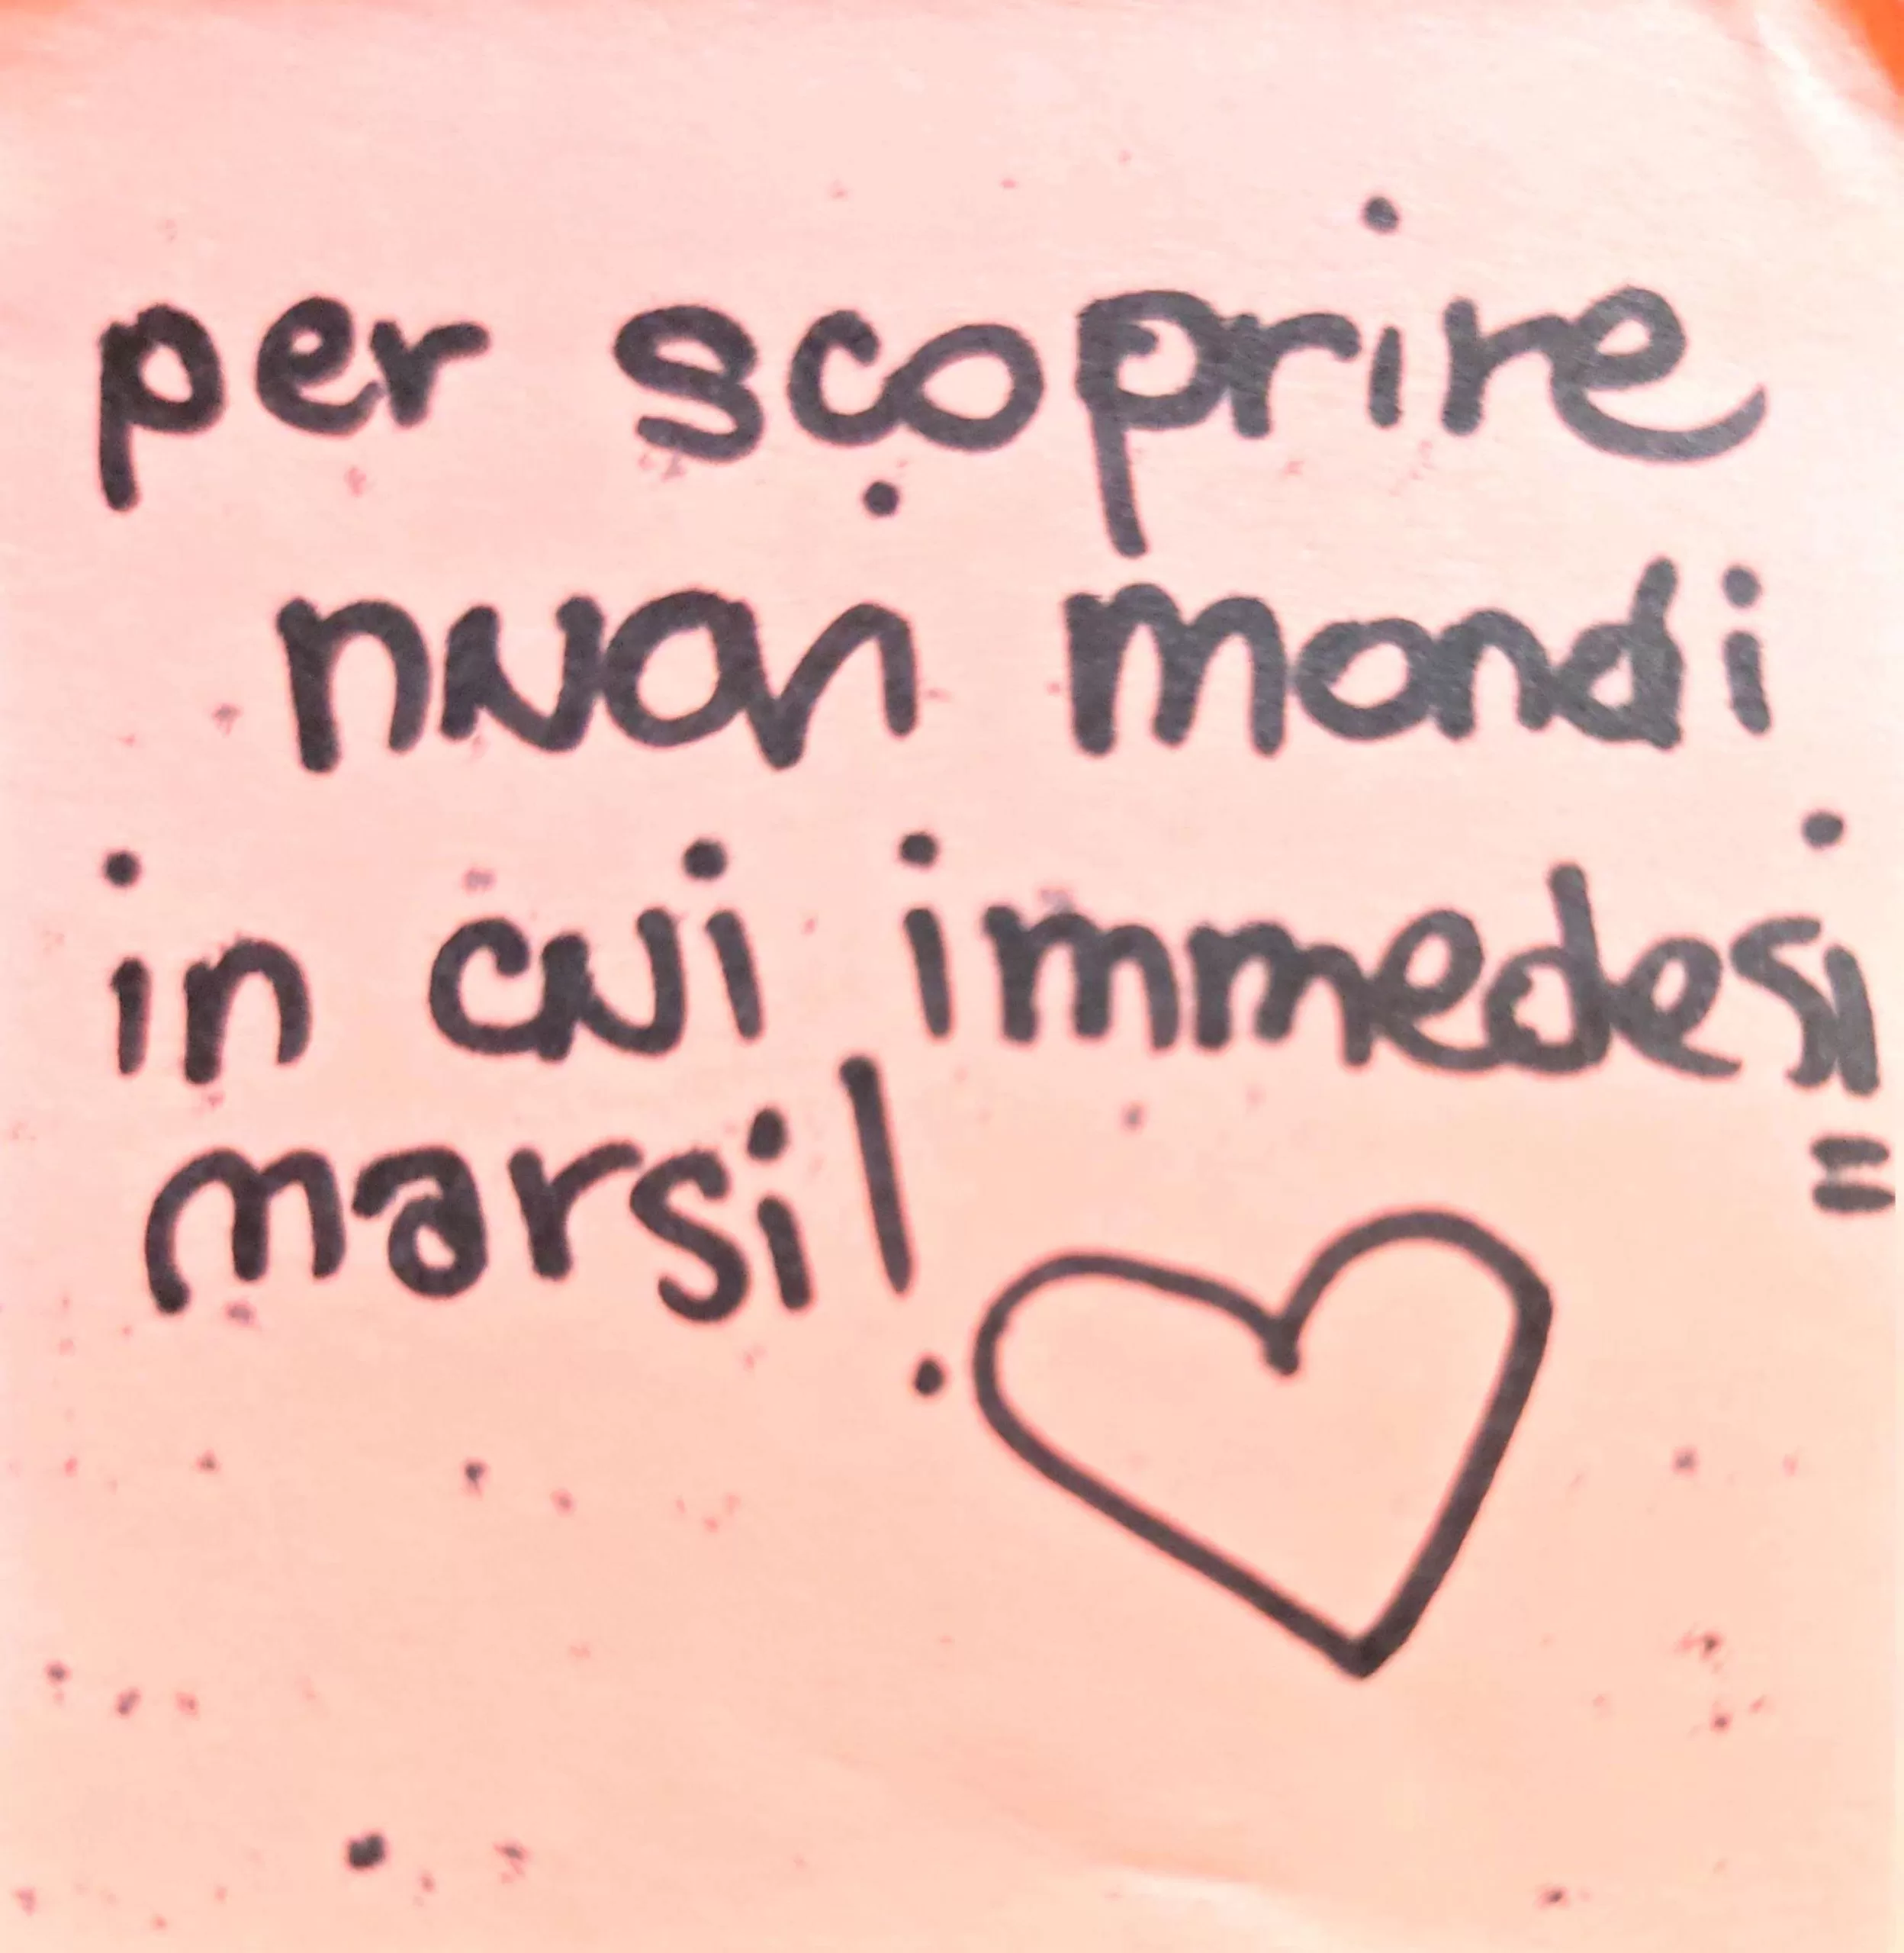 per scoprire
nuovi mondi
in cui immedesi=
marsi!